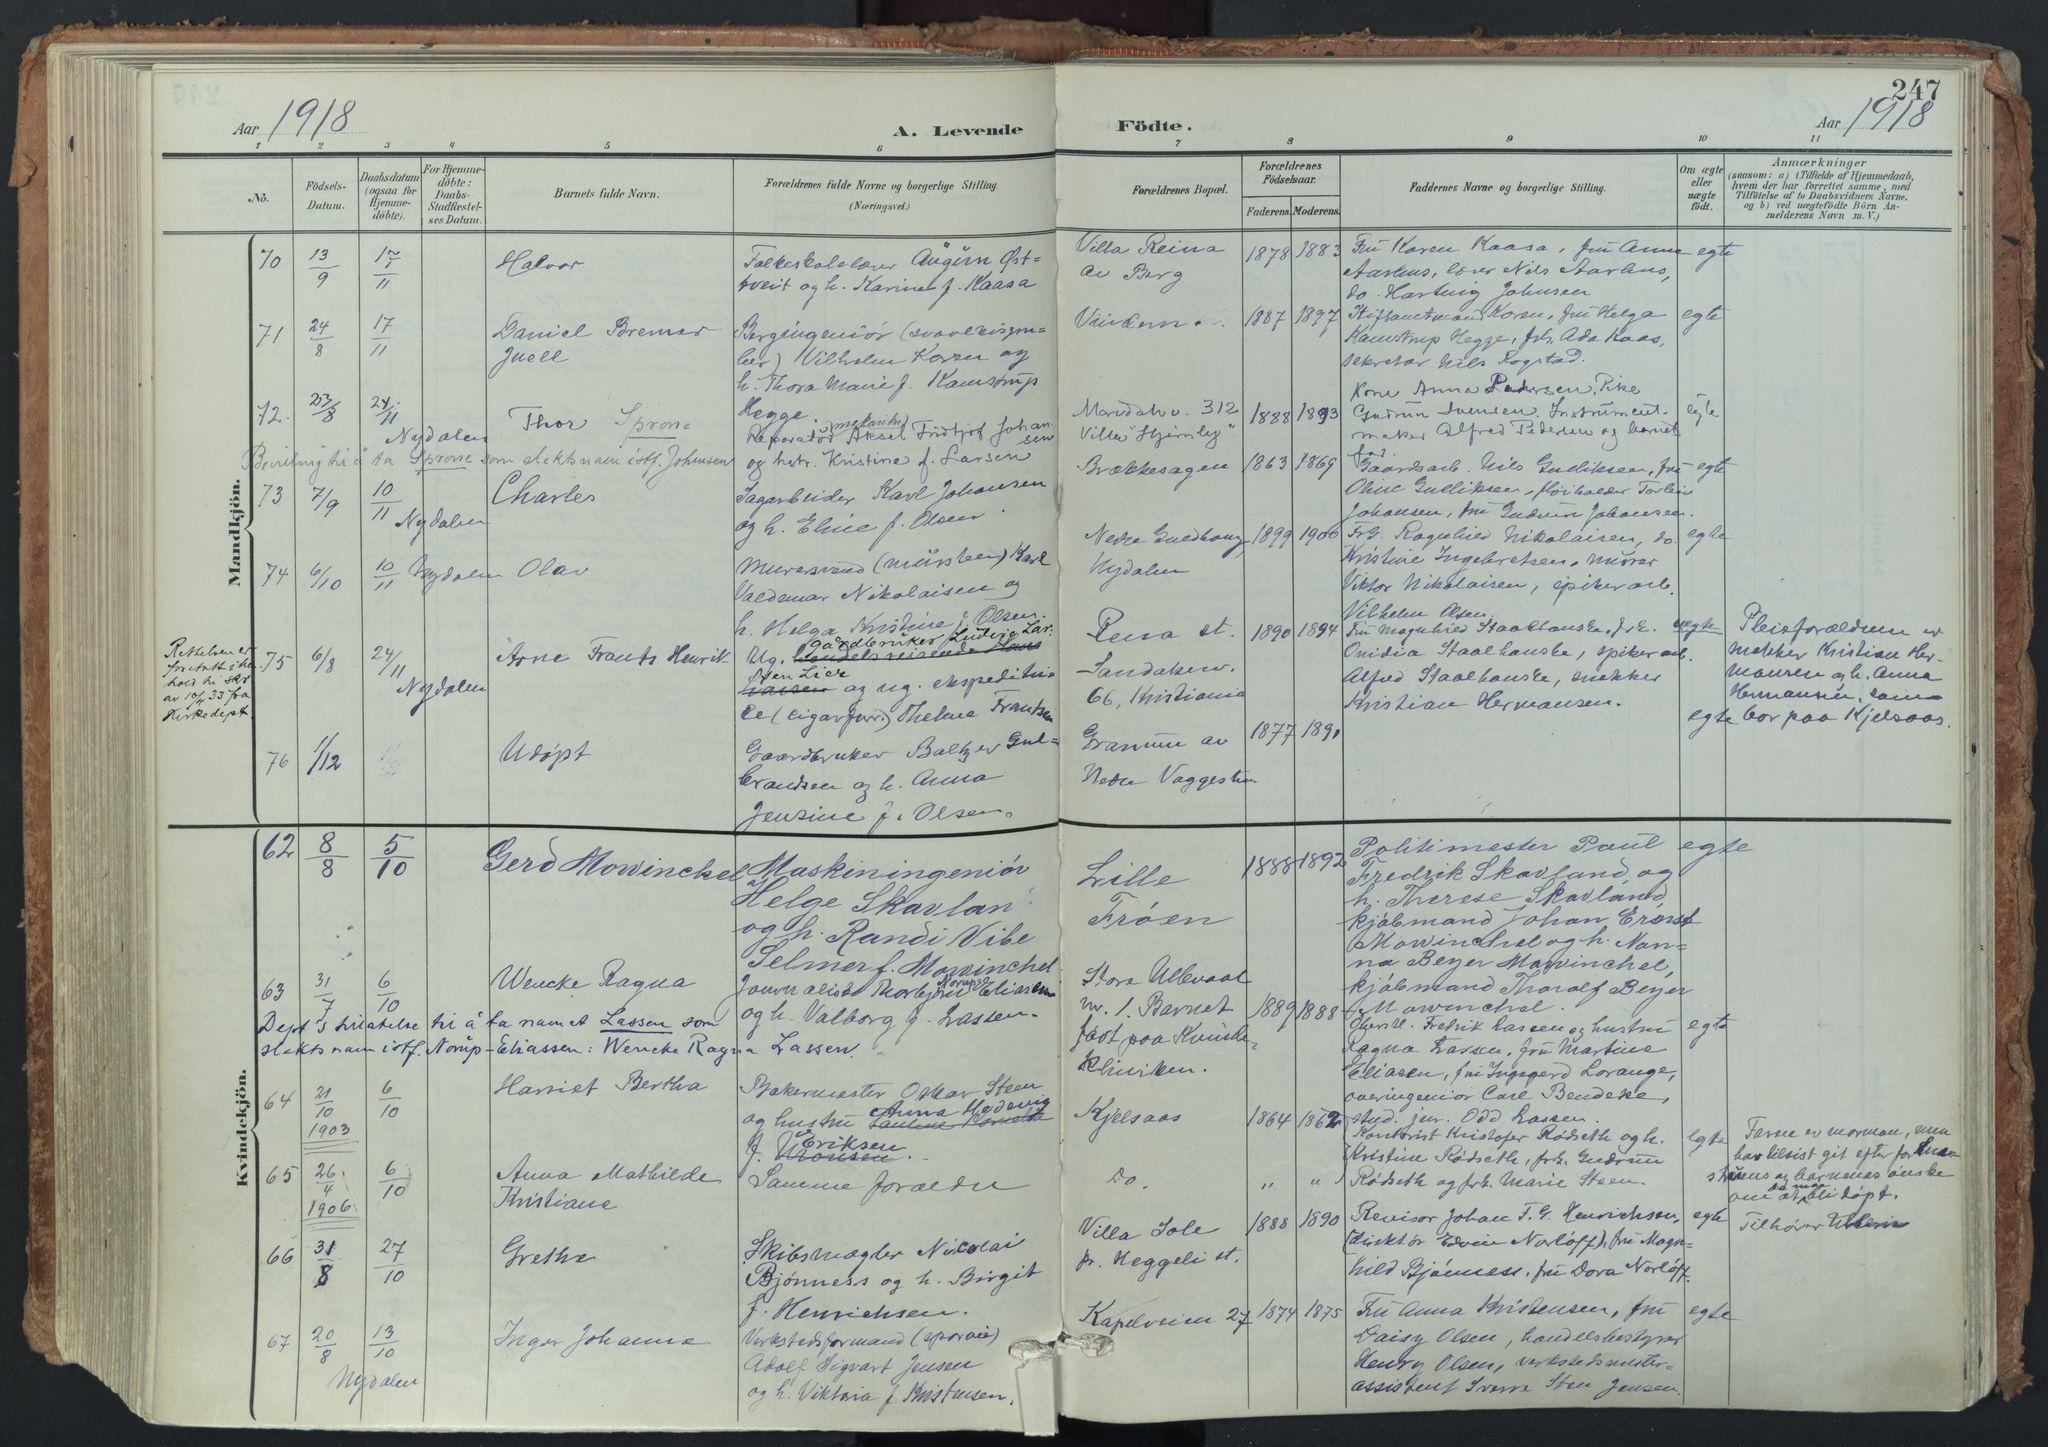 247
Aar 1918
A. Levende
Födte.
Aar 1918
1 2 3 4 5 6 7 8 9 10 11
No.
Födsels-
Datum.
Daabsdatum
(ogsaa for
Hjemme-
döbte).
For Hjemme-
döbte:
Daabs-
Stadfæstel-
ses Datum.
Barnets fulde Navn.
Forældrenes fulde Navne og borgerlige Stilling.
(Næringsvei.)
Forældrenes Bopæl.
Forældrenes
Födselsaar.
Faderens. Moderens.
Faddernes Navne og borgerlige Stilling.
Om ægte
eller
uægte
födt.
Anmærkninger
(saasom: a) i Tilfælde af Hjemmedaab,
hvem der har forrettet samme, med
Tilföielse af to Daabsvidners Navne,
og b) ved uægtefödte Börn An-
melderens Navn m. V.)
Mandkjön.
70 13/9 17/11 Halvor
Folkeskolelærer Augun Øst-
tveit og h. Karine f. Kaasa
Villa Reina
av Berg
1878 1883
Fru Karen Kaasa, fru Anna
Aarhus, lærer Nils Aarhus,
do. Hartvig Johnsen
egte
71 24/8 17/11 Daniel Bremer
Juell
Bergingeniør
Vilhelm Koren og
h. Thora Marie f. Kamstrup
Hegge.
Vinderen.
1887 1897
Stiftamtmand Koren, fru Helga
Kamstrup Hegge, frk. Ada Kaas,
sekretær Nils Rogstad.
egte
72. 23/8 24/11 Thor Sprone
Nydalen
(mekanik)
Reparatør Aksel Fridtjof Johan-
sen
og hstr. Kristine f. Larsen
Maridalsv. 312
Villa "Hjemly"
1888 1893
Kone Anna Pedersen. Pike
Gudrun Svensen. Instrument-
maker Alfred Pedersen og barnets
far
egte
Bevilling til å ta Sprone som slektsnavn istf. Johansen
73 7/9 10/11 Charles
Nydalen
Sagarbeider Karl Johansen
og h. Eline f. Olsen.
Brækkesagen
1863 1869
Gaardsarb. Nils Gulliksen, fru
Oline Gulliksen,
Johansen, fru Gudrun Johansen.
egte
74 6/10 10/11 Nydalen Olav
Murersvend (mursten) Karl
Valdemar Nikolaisen og
h. Helga Kristine f. Olsen.
Nedre Guldhaug
Nydalen
1899 1900
Frk. Ragnhild Nikolaisen, do.
Kristine Ingebretsen, murer
Viktor Nikolaisen, spikerarb.
Vilhelm Olsen.
egte
Rettelsen er
foretatt i hen-
hold til skr.
av 10/4 33 fra
Kirkedept.
75 6/8 24/11 Arne Frants Henrik
Nydalen
gårdbruker Ludvig Lar-
Ug. handelsreisende Hans
sen Lier
Larsen og ug. ekspeditri-
ce (cigarforr.) Thelma Frantsen
Rena st.
Sandakerv.
66, Kristiania
1890 1894
Fru Magnhild Staalhanske, frk.
Ovidia Staalhanske, spikerarb.
Alfred Staalhanske, snekker
Kristian Hermansen.
uegte
Pleieforældrene er
snekker Kristian Her-
mansen og h. Anna
Hermansen, som
bor paa Kjelsaas.
76 1/12 Udøpt
Gaardbruker Baltzer Gul-
brandsen og h. Anna
Jensine f. Olsen.
Granum av
Nedre Vaggestein
1877 1891
egte
Kvindekjön.
62 8/8 5/10 Gerd Mowinckel
Maskiningeniør
Helge Skavlan
og h. Randi Vibe
Selmer f. Mowinckel.
Lille
Frøen
1888 1892
Politimester Paul
Fredrik Skavland og
h. Therese Skavland,
kjøbmand Johan Ernst
Mowinchel og h. Nan-
na Beyer Mowinchel,
kjøbmand Thoralf Beyer
Mowinchel.
egte
63 31/7 6/10 Wencke Ragna
Norup
Journalist Thorbjørn Eliassen
og h. Valborg f. Lassen.
Store Ullevaal
nr. 1. Barnet
født paa Kvinde-
kliniken.
1889 1888
Oberstl. Fredrik Lassen og hustru
Ragna Lassen, fru Martine
Eliasen, fru Ingegerd Lorange,
overingeniør Carl Bendeke,
stud. jur. Odd Lassen.
egte
Dept's tillatelse til å ta navnet Lassen som
slektsnavn istf. Norup-Eliassen: Wencke Ragna Lassen.
64 21/10 1903 6/10 Harriet Bertha
Bakermester Oskar Steen
og hustru Anna Hedevig
f. Eriksen
Monsen.
Kjelsaas
1864 1862
Kontorist Kristofer Rødseth og h.
Kristine Rødseth, frk. Gudrun
Rødseth og frk. Marie Steen.
egte
Farne er mormon, men
har tilsist git efter for hu-
struens og barnenes ønske
om at de maa bli døpt.
65 26/4 1906 6/10 Anna Mathilde
Kristiane
Samme forældre
Do.
" "
66 31/8 27/10 Grethe
Skibsmægler Nicolai
Bjønness og h. Birgit
f. Henrichsen.
Villa Sole
pr. Heggeli st.
1888 1890
Revisor Johan F. G. Henrichsen,
direktør Edvin Norløff, fru Magn-
hild Bjønness, fru Dora Norløff.
egte
Tilhører Ullern
67 20/8 13/10 Inger Johanne
Nydalen
Verkstedsformand (sporvei)
Adolf Sigvart Jensen
og h. Viktoria f. Kristensen.
Kapelveien 27
1874 1875
Fru Anna Kristensen, fru
Daisy Olsen, handelsbestyrer
Henry Olsen, verkstedsmester-
assistent Sverre Sten Jensen.
egte